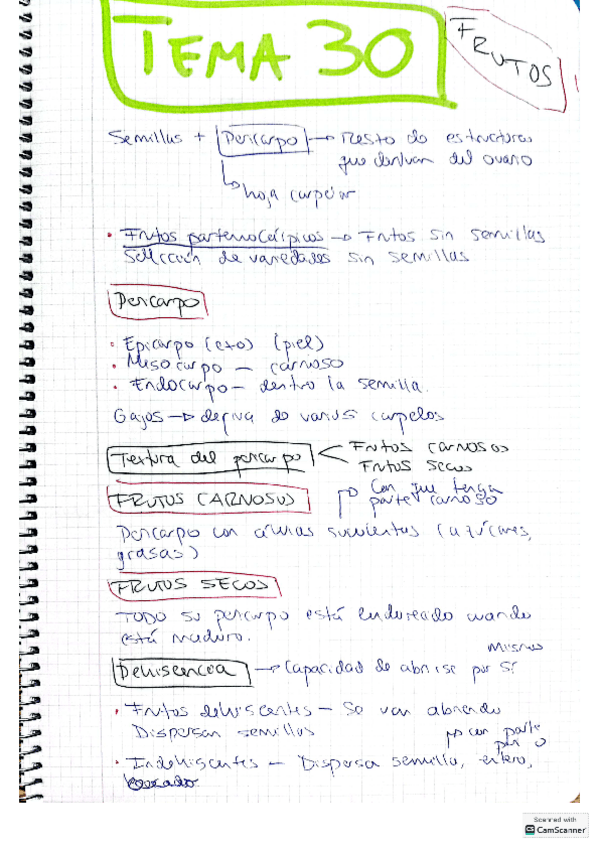 TEMA 30
FRUTOS
Semillas + Pericarpo → Resto de estructuras
que derivan del ovario
↳ hoja carpelar
• Frutos partenocárpicos → Frutos sin semillas
Selección de variedades sin semillas
Pericarpo
• Epicarpo (exo) (piel)
• Mesocarpo – carnoso
• Endocarpo – dentro la semilla.
Gajos → deriva de varios carpelos
Textura del pericarpo < Frutos carnosos
Frutos secos
FRUTOS CARNOSOS → Con que tenga
parte carnoso
Pericarpo con células suculentas (azúcares,
grasas)
FRUTOS SECOS
TODO su pericarpo está endurecido cuando
está maduro.
Dehiscencia → Capacidad de abrirse por sí
mismos
• Frutos dehiscentes – Se van abriendo
Dispersan semillas
• Indehiscentes – Dispersa semilla, entero,
→ con parte
Scanned with
CamScanner